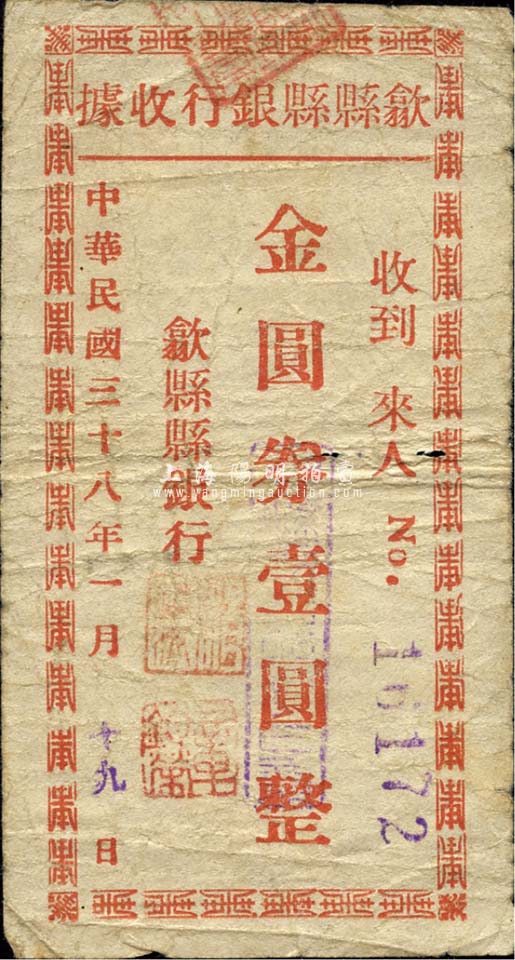 歙縣縣銀行收據
收到 來人 No. 16172
金圓券壹圓整
歙縣縣銀行
中華民國三十八年一月十九日
上海陽明拍賣
www.yangmingauction.com